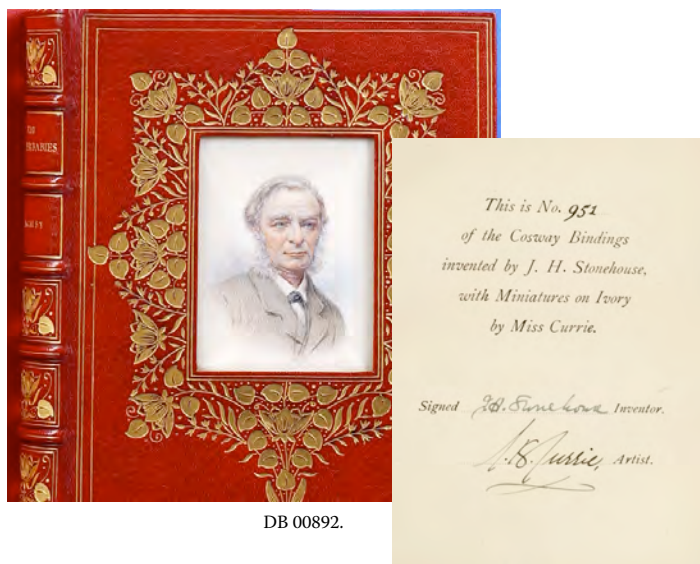 ERBABIES
This is No. 951
of the Cosway Bindings
invented by J. H. Stonehouse,
with Miniatures on Ivory
by Miss Currie.
Signed J.H. Stonehouse Inventor.
C.B. Currie, Artist.
DB 00892.